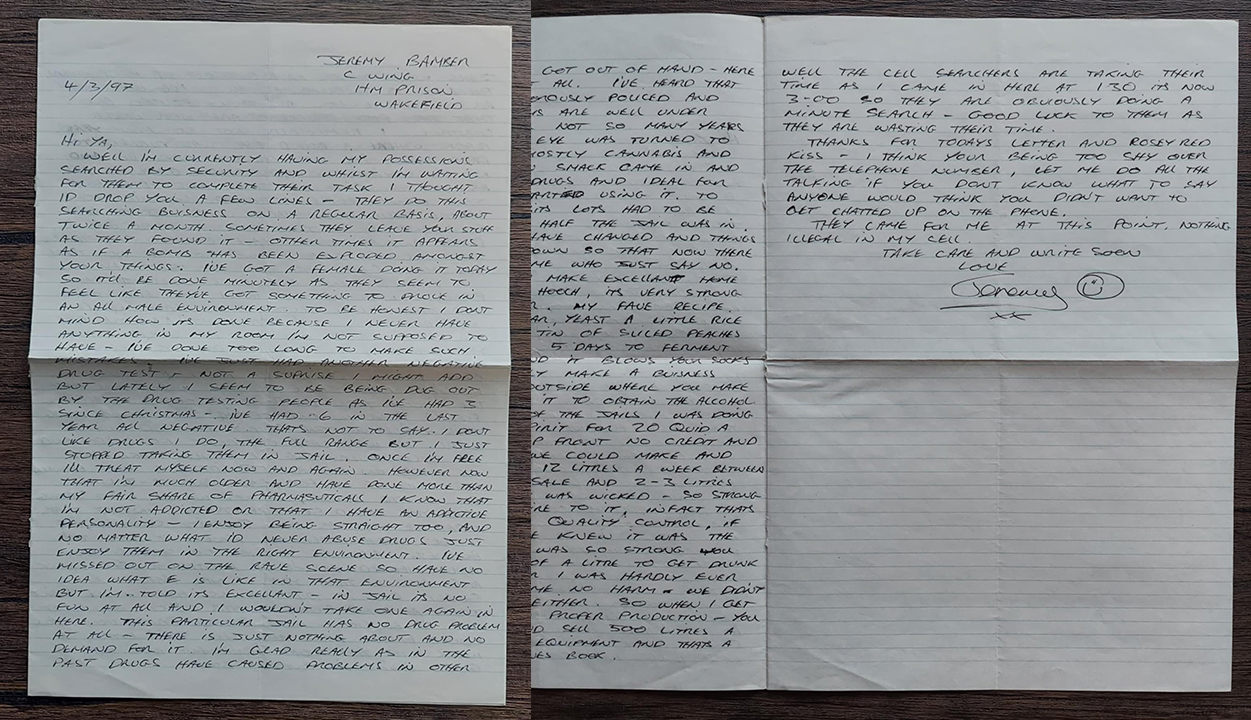 JEREMY BAMBER
C WING
HM PRISON
WAKEFIELD
4/3/97
HI YA,
WELL I'M CURRENTLY HAVING MY POSSESSIONS
SEARCHED BY SECURITY AND WHILST I'M WAITING
FOR THEM TO COMPLETE THEIR TASK I THOUGHT
I'D DROP YOU A FEW LINES - THEY DO THIS
SEARCHING BUISNESS ON A REGULAR BASIS, ABOUT
TWICE A MONTH. SOMETIMES THEY LEAVE YOUR STUFF
AS THEY FOUND IT - OTHER TIMES IT APPEARS
AS IF A BOMB HAS BEEN EXPLODED AMONGST
YOUR THINGS. I'VE GOT A FEMALE DOING IT TODAY
SO IT'LL BE DONE MINUTELY AS THEY SEEM TO
FEEL LIKE THEY'VE GOT SOMETHING TO PROVE IN
AN ALL MALE ENVIROMENT. TO BE HONEST I DONT
MIND HOW ITS DONE BECAUSE I NEVER HAVE
ANYTHING IN MY ROOM I'M NOT SUPPOSED TO
HAVE - I'VE DONE TOO LONG TO MAKE SUCH
MISTAKES. I'VE JUST HAD ANOTHER NEGATIVE
DRUG TEST - NOT A SUPRISE I MIGHT ADD
BUT LATELY I SEEM TO BE BEING DUG OUT
BY THE DRUG TESTING PEOPLE AS I'VE HAD 3
SINCE CHRISTMAS - I'VE HAD 6 IN THE LAST
YEAR ALL NEGATIVE. THATS NOT TO SAY I DONT
LIKE DRUGS I DO, THE FULL RANGE BUT I JUST
STOPPED TAKING THEM IN JAIL. ONCE I'M FREE
I'LL TREAT MYSELF NOW AND AGAIN. HOWEVER NOW
THAT I'M MUCH OLDER AND HAVE DONE MORE THAN
MY FAIR SHARE OF PHARMASUTICALS I KNOW THAT
I'M NOT ADDICTED OR THAT I HAVE AN ADDICTIVE
PERSONALITY - I ENJOY BEING STRAIGHT TOO, AND
NO MATTER WHAT I'D NEVER ABUSE DRUGS JUST
ENJOY THEM IN THE RIGHT ENVIROMENT. I'VE
MISSED OUT ON THE RAVE SCENE SO HAVE NO
IDEA WHAT E IS LIKE IN THAT ENVIROMENT
BUT I'M TOLD ITS EXCELLANT - IN JAIL ITS NO
FUN AT ALL AND I WOULDN'T TAKE ONE AGAIN IN
HERE. THIS PARTICULAR JAIL HAS NO DRUG PROBLEM
AT ALL - THERE IS JUST NOTHING ABOUT AND NO
DEMAND FOR IT. I'M GLAD REALLY AS IN THE
PAST DRUGS HAVE CAUSED PROBLEMS IN OTHER
GOT OUT OF HAND - HERE
ALL. I'VE HEARD THAT
POLICED AND
ARE WELL UNDER
NOT SO MANY YEARS
EYE WAS TURNED TO
CANNABIS AND
SMACK CAME IN AND
DRUGS AND IDEAL FOR
USING IT. TO
ITS LOTS HAD TO BE
HALF THE JAIL WAS IN.
HAVE CHANGED AND THINGS
SO THAT NOW THERE
WHO JUST SAY NO.
MAKE EXCELLANT HOME
HOOCH, ITS VERY STRONG
MY FAVE RECIPE.
YEAST A LITTLE RICE
TIN OF SLICED PEACHES
5 DAYS TO FERMENT
IT BLOWS YOUR SOCKS
MAKE A BUISNESS
OUTSIDE WHERE YOU MAKE
IT TO OBTAIN THE ALCOHOL
OF THE JAILS I WAS DOING
FOR 20 QUID A
FRONT NO CREDIT AND
WE COULD MAKE AND
12 LITRES A WEEK BETWEEN
SALE AND 2-3 LITRES
WAS WICKED - SO STRONG
TO IT, INFACT THATS
QUALITY CONTROL, IF
KNEW IT WAS THE
WAS SO STRONG YOU
OF A LITRE TO GET DRUNK
I WAS HARDLY EVER
NO HARM - WE DIDN'T
EITHER. SO WHEN I GET
PROPER PRODUCTION - YOU
SELL 500 LITRES A
EQUIPMENT AND THATS A
BOOK.
WELL THE CELL SEARCHERS ARE TAKING THEIR
TIME AS I CAME IN HERE AT 1 30 ITS NOW
3-00 SO THEY ARE OBVIOUSLY DOING A
MINUTE SEARCH - GOOD LUCK TO THEM AS
THEY ARE WASTING THEIR TIME.
THANKS FOR TODAYS LETTER AND ROSEY RED
KISS - I THINK YOUR BEING TOO SHY OVER
THE TELEPHONE NUMBER, LET ME DO ALL THE
TALKING IF YOU DONT KNOW WHAT TO SAY
ANYONE WOULD THINK YOU DIDN'T WANT TO
GET CHATTED UP ON THE PHONE.
THEY CAME FOR ME AT THIS POINT, NOTHING
ILLEGAL IN MY CELL.
TAKE CARE AND WRITE SOON
LOVE
Jeremy
xx